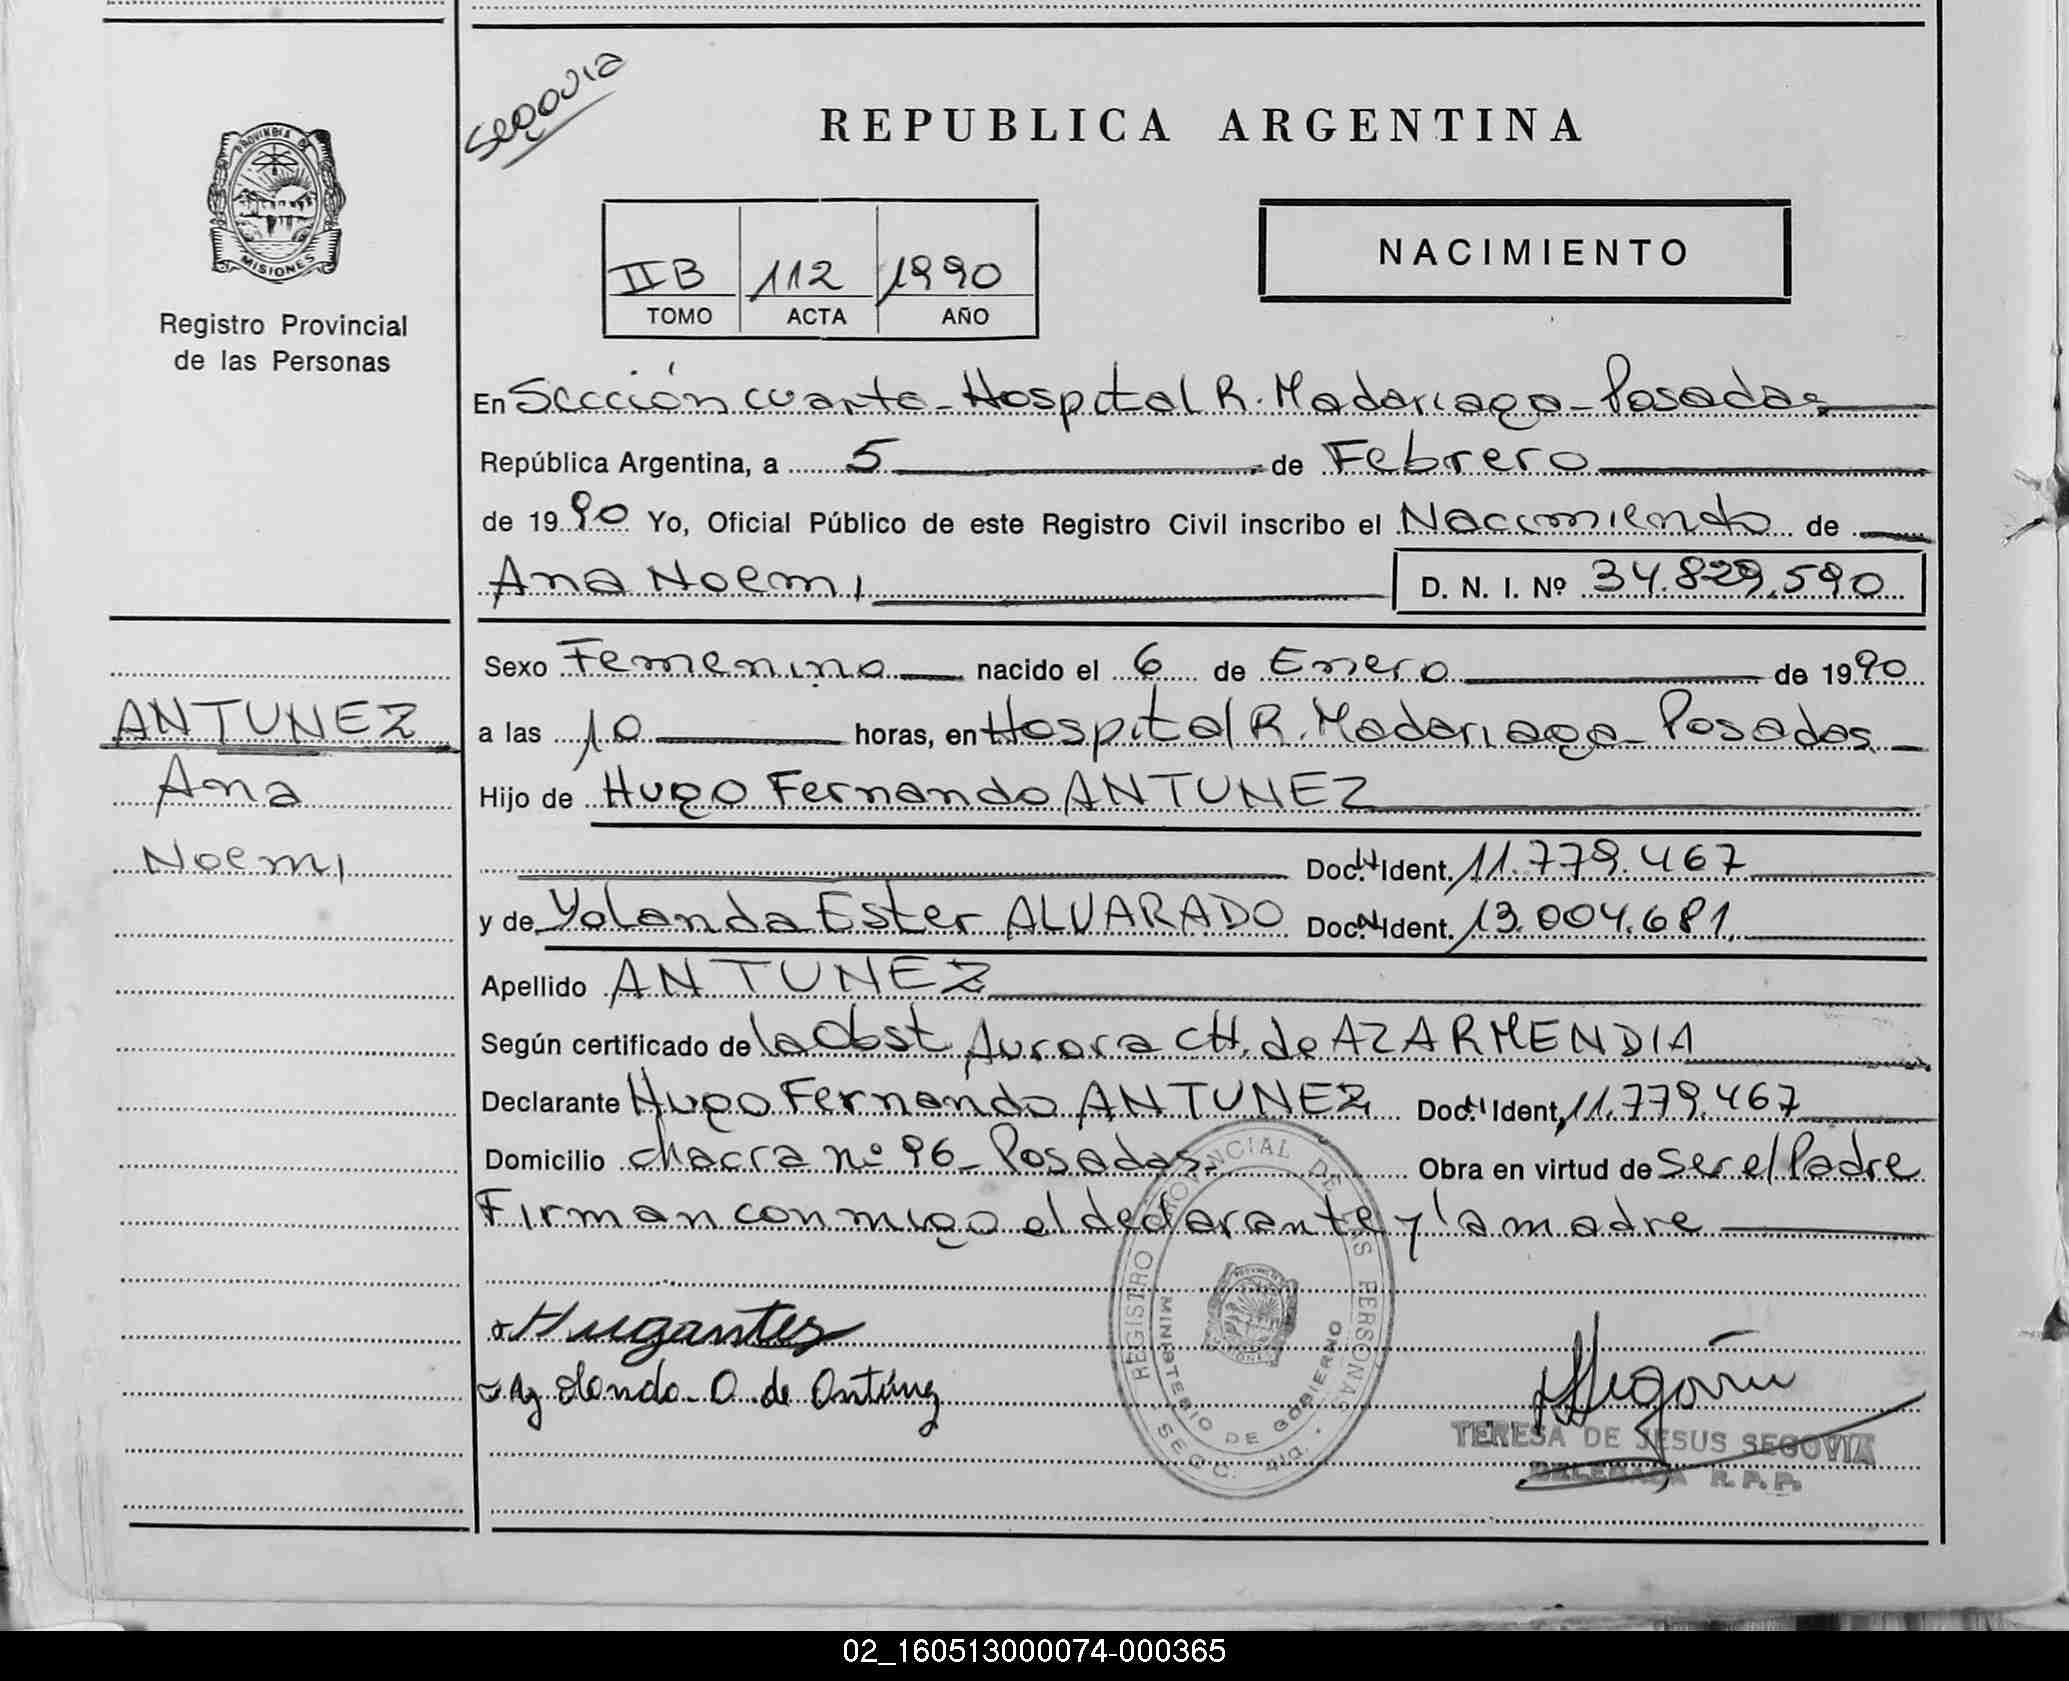 Segovia
REPUBLICA ARGENTINA
PROVINCIA DE
MISIONES
Registro Provincial
de las Personas
NACIMIENTO
II B 112 1990
TOMO ACTA AÑO
En Sección cuarta - Hospital R. Madariaga - Posadas
República Argentina, a 5 de Febrero
de 1990 Yo, Oficial Público de este Registro Civil inscribo el Nacimiento de
Ana Noemi D. N. I. Nº 34.829.590
Sexo Femenino nacido el 6 de Enero de 1990
a las 10 horas, en Hospital R. Madariaga - Posadas
Hijo de Hugo Fernando ANTUNEZ
Doc. N Ident. 11.779.467
y de Yolanda Ester ALVARADO Doc. N Ident. 13.004.681
Apellido ANTUNEZ
Según certificado de la Obst Aurora CH. de AZARMENDIA
Declarante Hugo Fernando ANTUNEZ Doc. N Ident. 11.779.467
Domicilio chacra nº 96 - Posadas. Obra en virtud de Ser el Padre
Firman conmigo el declarante y la madre
ANTUNEZ
Ana
Noemi
REGISTRO PROVINCIAL DE LAS PERSONAS
MINISTERIO DE GOBIERNO
SECC. 4ta.
de Antúnez
Segovia
TERESA DE JESUS SEGOVIA
DELEGADA R. P. P.
02_160513000074-000365